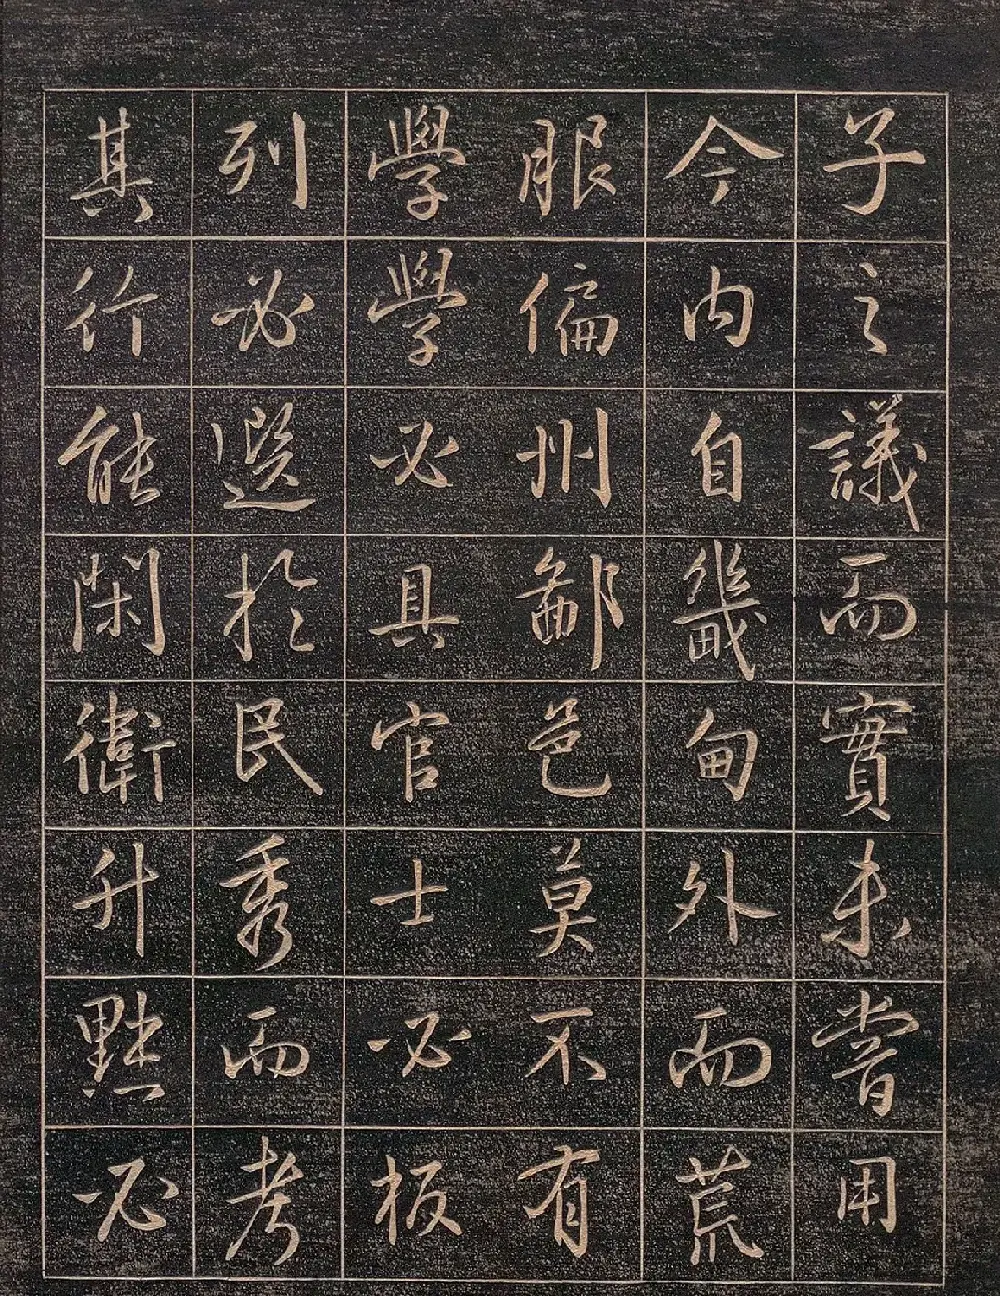 子之議而實未嘗用
今内自畿甸外而荒
服偏州鄙邑莫不有
學學必具官士必板
列必選於民秀而考
其行能閑衛升黜必